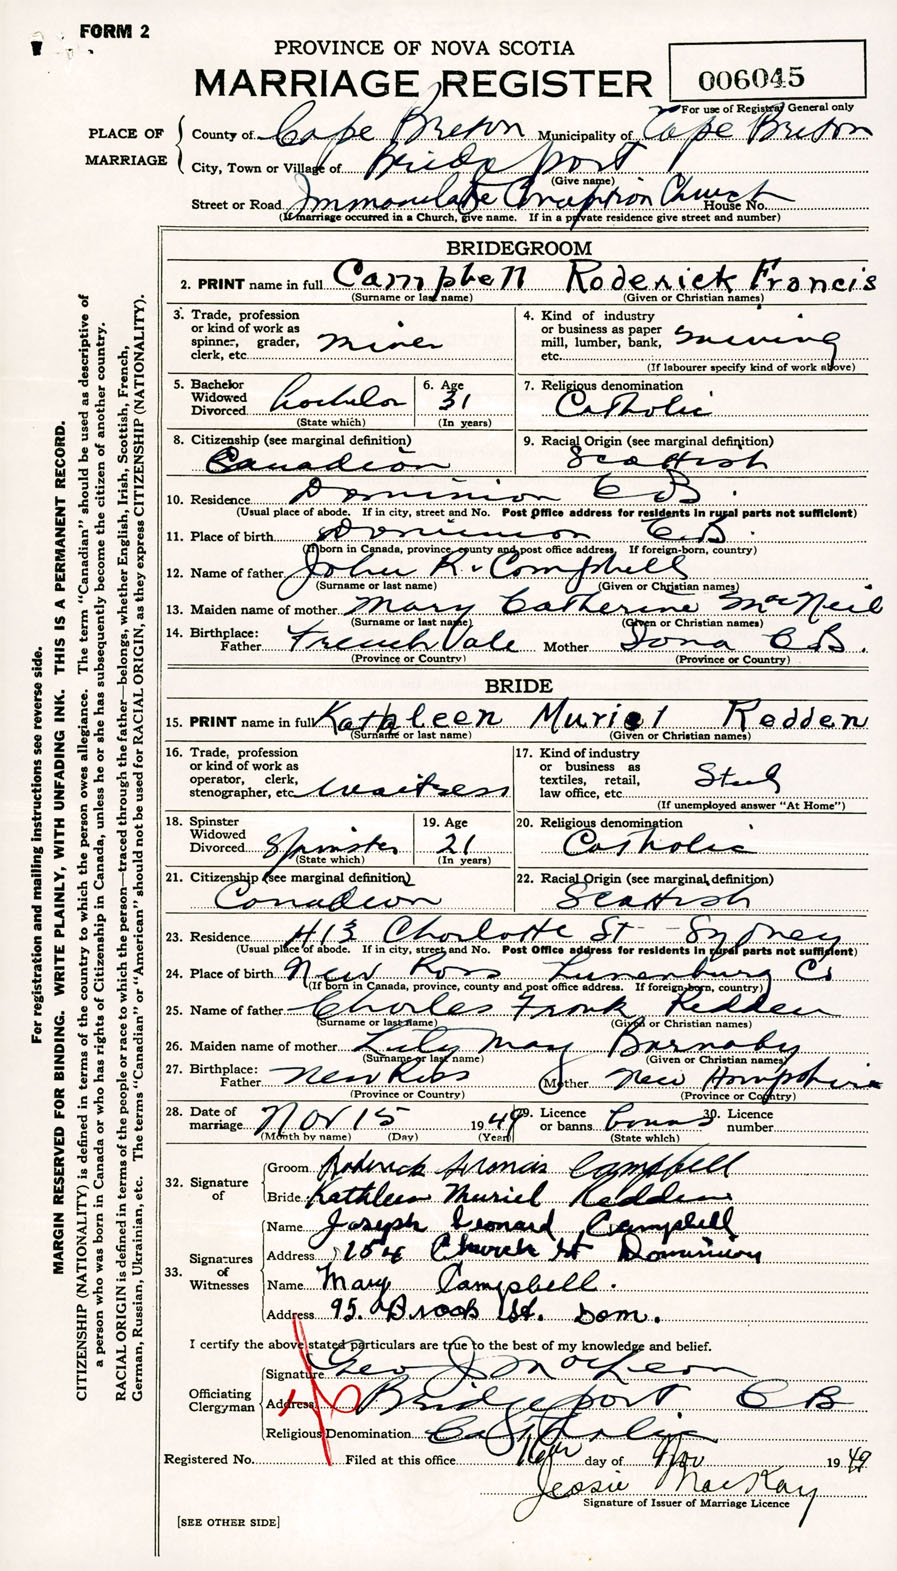 FORM 2
PROVINCE OF NOVA SCOTIA
MARRIAGE REGISTER
006045
For use of Registrar General only
PLACE OF MARRIAGE
County of Cape Breton Municipality of Cape Breton
City, Town or Village of Bridgeport
(Give name)
Street or Road Immaculate Conception Church House No.
(If marriage occurred in a Church, give name. If in a private residence give street and number)
BRIDEGROOM
2. PRINT name in full Campbell Roderick Francis
(Surname or last name) (Given or Christian names)
3. Trade, profession or kind of work as spinner, grader, clerk, etc. Miner
4. Kind of industry or business as paper mill, lumber, bank, etc. mining
(If labourer specify kind of work above)
5. Bachelor Widowed Divorced bachelor
(State which)
6. Age 31
(In years)
7. Religious denomination
Catholic
8. Citizenship (see marginal definition)
Canadian
9. Racial Origin (see marginal definition)
Scottish
10. Residence Dominion C B.
(Usual place of abode. If in city, street and No. Post Office address for residents in rural parts not sufficient)
11. Place of birth Dominion C.B.
(If born in Canada, province, county and post office address. If foreign-born, country)
12. Name of father John R. Campbell
(Surname or last name) (Given or Christian names)
13. Maiden name of mother Mary Catherine MacNeil
(Surname or last name) (Given or Christian names)
14. Birthplace: Father French Vale Mother Iona C B.
(Province or Country) (Province or Country)
BRIDE
15. PRINT name in full Kathleen Muriel Redden
(Surname or last name) (Given or Christian names)
16. Trade, profession or kind of work as operator, clerk, stenographer, etc. waitress
17. Kind of industry or business as textiles, retail, law office, etc.
(If unemployed answer "At Home")
18. Spinster Widowed Divorced Spinster
(State which)
19. Age 21
(In years)
20. Religious denomination
Catholic
21. Citizenship (see marginal definition)
Canadian
22. Racial Origin (see marginal definition)
Scottish
23. Residence Charlotte St - Sydney
(Usual place of abode. If in city, street and No. Post Office address for residents in rural parts not sufficient)
24. Place of birth New Ross Lunenburg Co
(If born in Canada, province, county and post office address. If foreign-born, country)
25. Name of father Charles Frank Redden
(Surname or last name) (Given or Christian names)
26. Maiden name of mother Lily May Barnaby
(Surname or last name) (Given or Christian names)
27. Birthplace: Father New Ross Mother New Hampshire
(Province or Country) (Province or Country)
28. Date of marriage Nov 15 1949
(Month by name) (Day) (Year)
29. Licence or banns banns
(State which)
30. Licence number
32. Signature of
Groom Roderick Francis Campbell
Bride Kathleen Muriel Redden
33. Signatures of Witnesses
Name Joseph Leonard Campbell
Address 154 Church St Dominion
Name Mary Campbell.
Address 95. Brook St. Dom.
I certify the above stated particulars are true to the best of my knowledge and belief.
Officiating Clergyman
Signature Geo J MacLean
Address Bridgeport C B
Religious Denomination Catholic
Registered No. Filed at this office day of Nov 1949
Jessie MacKay
Signature of Issuer of Marriage Licence
[SEE OTHER SIDE]
For registration and mailing instructions see reverse side.
MARGIN RESERVED FOR BINDING. WRITE PLAINLY, WITH UNFADING INK. THIS IS A PERMANENT RECORD.
CITIZENSHIP (NATIONALITY) is defined in terms of the country to which the person owes allegiance. The term "Canadian" should be used as descriptive of
a person who was born in Canada or who has rights of Citizenship in Canada, unless he or she has subsequently become the citizen of another country.
RACIAL ORIGIN is defined in terms of the people or race to which the person—traced through the father—belongs, whether English, Irish, Scottish, French,
German, Russian, Ukrainian, etc. The terms "Canadian" or "American" should not be used for RACIAL ORIGIN, as they express CITIZENSHIP (NATIONALITY).